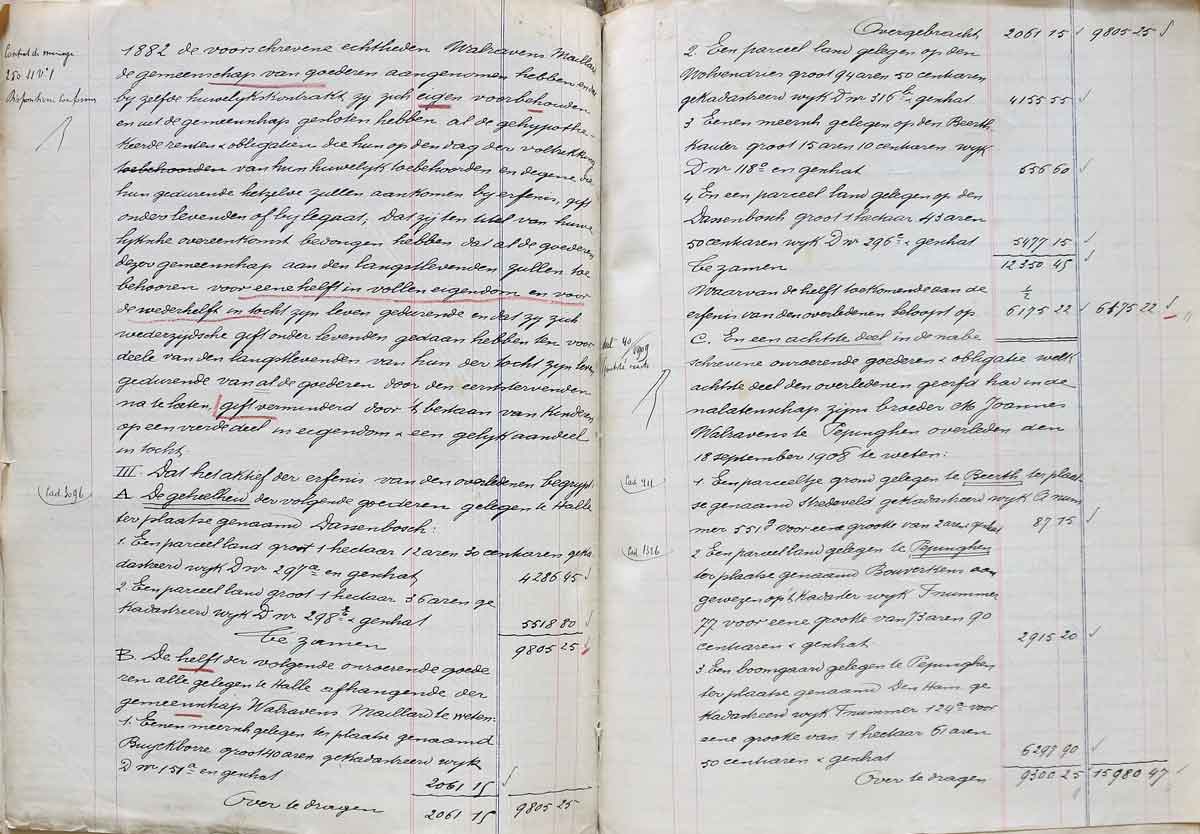 Contrat de mariage
250 11 V° 1
1882 de voorschrevene echtheden Walravens Maillard
de gemeenschap van goederen aangenomen hebben en dat
by zelfde huwelijkskontrakt zy zich eigen voorbehouden
en uit de gemeenschap gesloten hebben al de gehypothe-
keerde renten & obligatien die hun op den dag der voltrekking
toebehoorden van hun huwelyk toebehoorden en degene die
hun gedurende hetzelve zullen aankomen by erfenis, gift
onder levenden of by legaat, Dat zij ten titel van huwe
lyksche overeenkomst bedongen hebben dat al de goederen
dezer gemeenschap aan den langstlevenden zullen toe
behooren voor eene helft in vollen eigendom en voor
de wederhelft in tocht zyn leven gedurende en dat zy zich
wederzydsche gift onder levenden gedaan hebben ten voor
deele van den langstlevenden van hun der tocht zyn leven
gedurende van al de goederen door den eerststervenden
na te laten, gift verminderd door 't bestaan van kinderen
op een vierde deel in eigendom & een gelyk aandeel
in tocht.
III. Dat het aktief der erfenis van den overledenen begrypt:
Cad. 3096
A. De geheelheid der volgende goederen gelegen te Halle
ter plaatse genaamd Dassenbosch:
1. Een parceel land groot 1 hectaar 12 aren 30 centiaren geka
dastreerd wyk D nr 297a en genhat 4286 45
2 Een parceel land groot 1 hectaar 36 aren ge
kadastreerd wyk D nr 298b & genhat 5518 80
Te zamen 9805 25
B. De helft der volgende onroerende goede
ren alle gelegen te Halle afhangende der
gemeenschap Walravens Maillard te weten:
1. Eenen meersch gelegen ter plaatse genaamd
Buyckborre groot 40 aren gekadastreerd wyk
D nr 151a en genhat 2061 15
Over te dragen 2061 15 9805 25
Overgebracht 2061 15 9805 25
2. Een parceel land gelegen op den
Wolvendries groot 94 aren 50 centiaren
gekadastreerd wyk D nr 316b & genhat 4155 55
3 Eenen meersch gelegen op den Beerth-
kauter groot 15 aren 10 centiaren wyk
D nr 118a en genhat 656 60
4 En een parceel land gelegen op den
Dassenbosch groot 1 hectaar 43 aren
50 centiaren wyk D nr 296a & genhat 5477 15
Te zamen 12350 45
Waarvan de helft toekomende aan de 1/2
erfenis van den overledenen beloopt op 6175 22 6175 22
40/1909
C. En een achtste deel in de nabe
schrevene onroerende goederen & obligatie welk
achtste deel den overledenen geerfd had in de
nalatenschap zyns broeder M Joannes
Walravens te Pepinghen overleden den
18 september 1908 te weten:
Cad 411
1. Een parceeltje grond gelegen te Beerth ter plaat-
se genaamd Stedeveld gekadastreerd wyk A num
mer 551g voor eene grootte van 2 aren genhat 87 15
Cad 1356
2 Een parceel land gelegen te Pepinghen
ter plaatse genaamd Bouverkens aan
gewezen op 't kadaster wyk F nummer
77 voor eene grootte van 73 aren 90
centiaren & genhat 2915 20
3 Een boomgaard gelegen te Pepinghen
ter plaatse genaamd Den Ham ge
kadastreerd wyk F nummer 124a voor
eene grootte van 1 hectaar 61 aren
50 centiaren & genhat 6297 90
Over te dragen 9300 25 15980 47